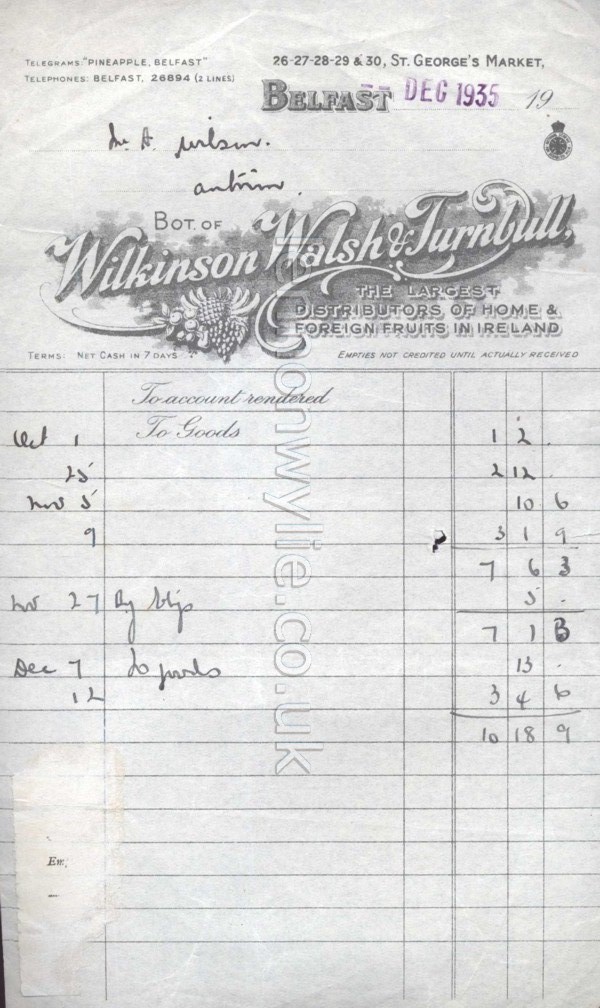 TELEGRAMS: "PINEAPPLE, BELFAST"
TELEPHONES: BELFAST, 26894 (2 LINES)
26-27-28-29 & 30, ST. GEORGE'S MARKET,
BELFAST -- DEC 1935 19
Mr A. Wilson.
Antrim.
BOT. OF
Wilkinson Walsh & Turnbull,
THE LARGEST
DISTRIBUTORS OF HOME &
FOREIGN FRUITS IN IRELAND
TERMS: NET CASH IN 7 DAYS
EMPTIES NOT CREDITED UNTIL ACTUALLY RECEIVED
To account rendered
Oct 1 To Goods 1 2 .
25 2 12 .
Nov 5 10 6
9 3 1 9
7 6 3
Nov 27 By 5 .
7 1 3
Dec 7 To goods 13 .
12 3 4 6
10 18 9
Ex.
wylie.co.uk